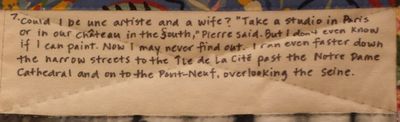 7. Could I be une artiste and a wife? "Take a studio in Paris
or in our château in the South," Pierre said. But I don't even know
if I can paint. Now I may never find out. I ran even faster down
the narrow streets to the Île de La Cité past the Notre Dame
Cathedral and on to the Pont-Neuf, overlooking the Seine.